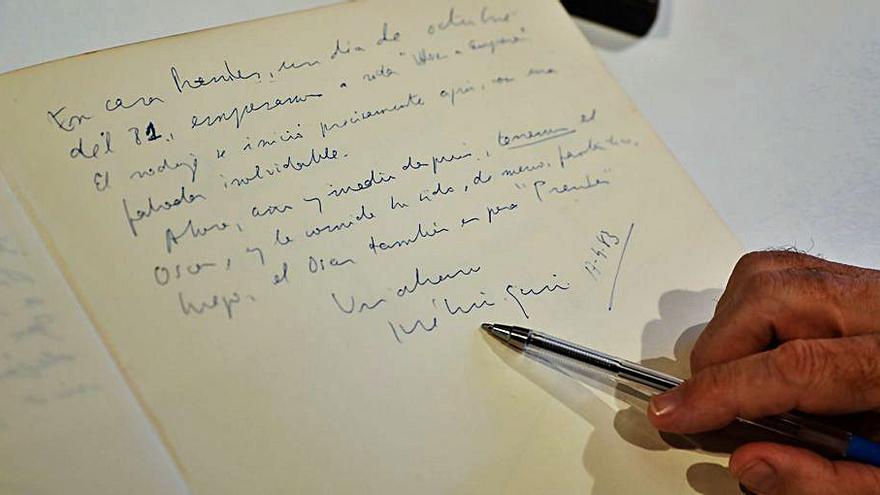 En casa Prendes, un día de octubre
del 81, empezamos a rodar "Volver a empezar".
El rodaje se inició precisamente aquí, con una
fabada inolvidable.
Ahora, año y medio después, tenemos el
Oscar, y la comida ha sido, de nuevo, fantástica.
Mejor, el Oscar también es para "Prendes"
Un abrazo
José Luis Garci 17-4-83